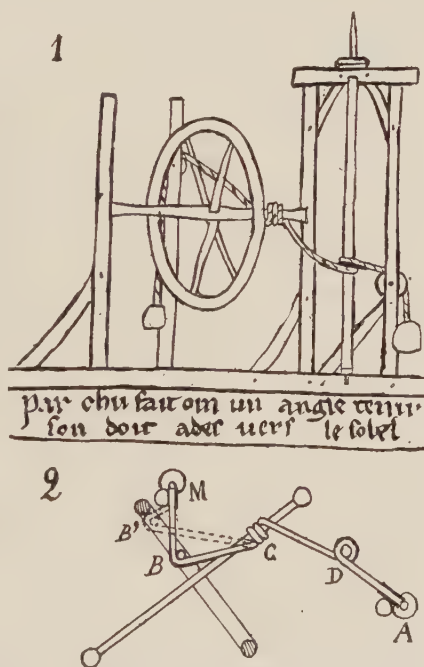 1
par chu fait om un angle tenir
son doit ades uers le solel
2
M
B'
B
C
D
A